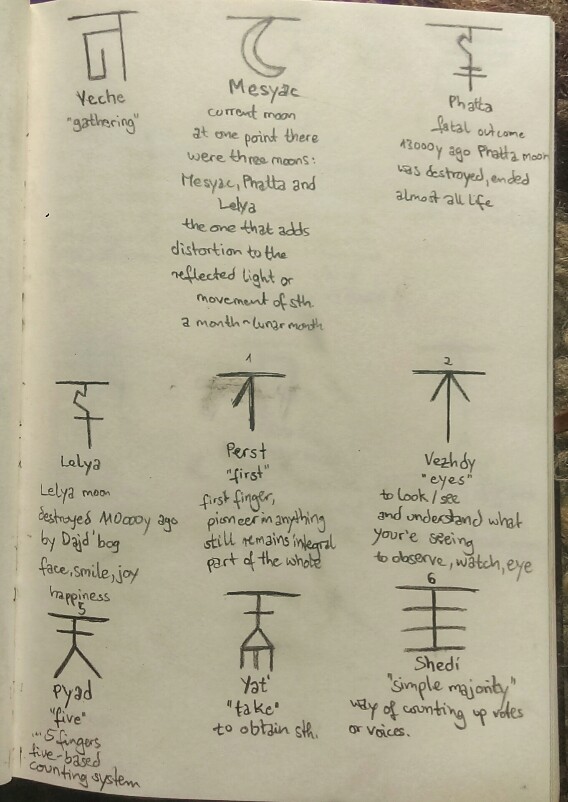 Veche
"gathering"
Mesyac
current moon
at one point there
were three moons:
Mesyac, Phatta and
Lelya
the one that adds
distortion to the
reflected light or
movement of sth.
a month ~ lunar month
Phatta
fatal outcome
13000y ago Phatta moon
was destroyed, ended
almost all life
Lelya
Lelya moon
destroyed 110000y ago
by Dajd'bog
face, smile, joy
happiness
1
Perst
"first"
first finger,
pioneer in anything
still remains integral
part of the whole
2
Vezhdy
"eyes"
to look/see
and understand what
your'e seeing
to observe, watch, eye
5
Pyad
"five"
...5 fingers
five-based
counting system
Yat'
"take"
to obtain sth.
6
Shedi
"simple majority"
way of counting up votes
or voices.